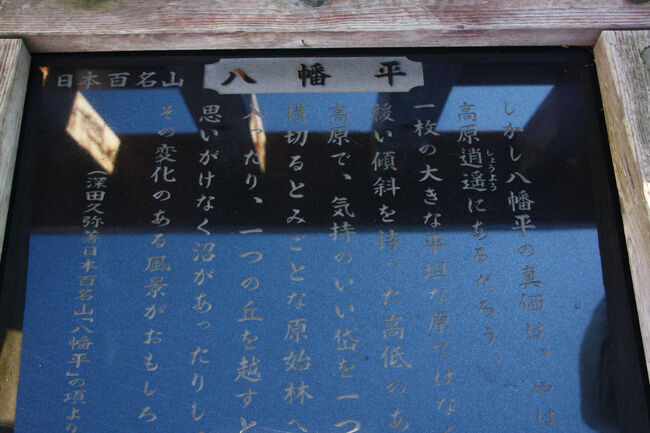 日本百名山
八幡平
しかし八幡平の真価は、やは
高原逍遥にあるだろう。
しょうよう
一枚の大きな平坦な原ではな
緩い傾斜を持った高低のあ
高原で、気持のいい岱を一つ
横切るとみごとな原始林へ
ったり、一つの丘を越すと
思いがけなく沼があったりし
その変化のある風景がおもしろ
(深田久弥著日本百名山「八幡平」の項より